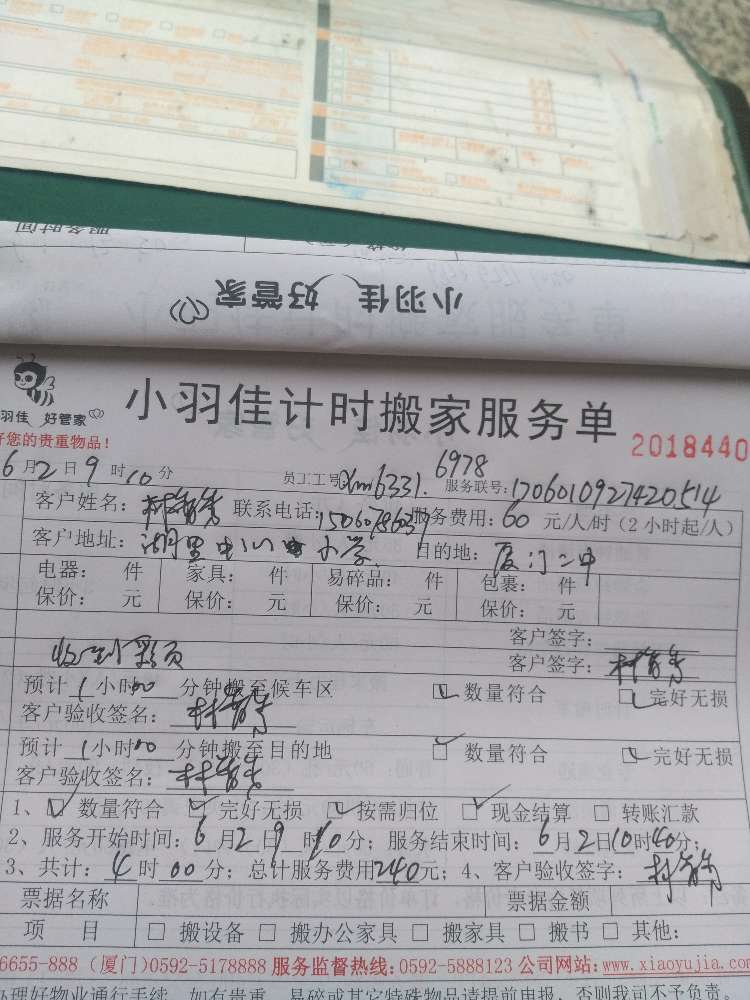 小羽佳 好管家
羽佳 好管家
小羽佳计时搬家服务单
2018440
好您的贵重物品！
6月2日9时10分 员工工号：Xm6331. 6978 服务联号：1706010927420514
客户姓名： 联系电话：15060786037 服务费用：60 元/人/时（2小时起/人）
客户地址：湖里中心小学 目的地：厦门二中
电器： 件 家具： 件 易碎品： 件 包裹： 件
保价： 元 保价： 元 保价： 元 保价： 元
客户签字：
收到彩页 客户签字：
预计1小时00分钟搬至候车区 数量符合 完好无损
客户验收签名：
预计1小时00分钟搬至目的地 数量符合 完好无损
客户验收签名：
1、 数量符合 完好无损 按需归位 现金结算 转账汇款
2、服务开始时间：6月2日9时10分；服务结束时间：6月2日10时40分；
3、共计：4时00分；总计服务费用240元；4、客户验收签字：
票据名称 票据金额
项 目 搬设备 搬办公家具 搬家具 搬书 其他:
6655-888（厦门）0592-5178888 服务监督热线：0592-5888123 公司网站：www.xiaoyujia.com
办理好物业通行手续，如有贵重、易碎或其它特殊物品请提前申报，否则我司不予负责。